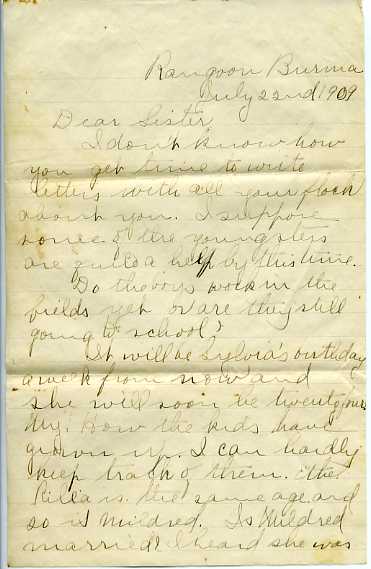 Rangoon Burma
July 22nd 1909
Dear Sister
I don't know how
you get time to write
letters with all your flock
about you. I suppose
some of the youngsters
are quite a help by this time.
Do the boys work in the
fields yet or are they still
going to school?
It will be Sylvia's birthday
a week from now and
she will soon be twenty
My. How the kids have
grown up. I can hardly
keep track of them.
is the same age and
so is Mildred. Is Mildred
married? I heard she was